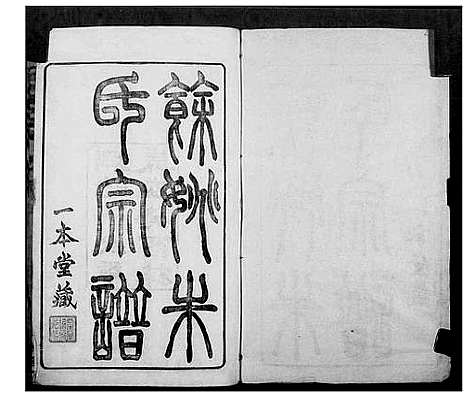 餘姚朱
氏宗譜
一本堂藏